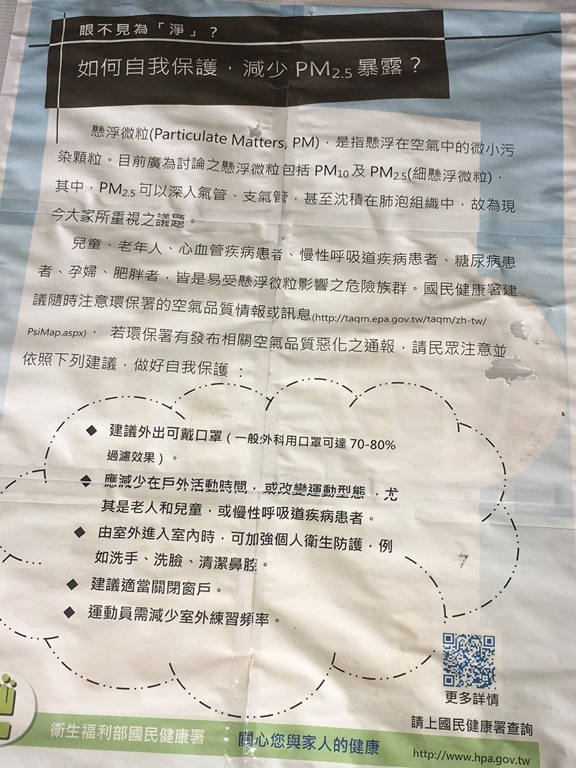 眼不見為「淨」？
如何自我保護，減少 PM2.5 暴露？
懸浮微粒(Particulate Matters, PM)，是指懸浮在空氣中的微小污
染顆粒。目前廣為討論之懸浮微粒包括 PM10 及 PM2.5(細懸浮微粒)，
其中，PM2.5 可以深入氣管、支氣管，甚至沈積在肺泡組織中，故為現
今大家所重視之議題。
兒童、老年人、心血管疾病患者、慢性呼吸道疾病患者、糖尿病患
者、孕婦、肥胖者，皆是易受懸浮微粒影響之危險族群。國民健康署建
議隨時注意環保署的空氣品質情報或訊息(http://taqm.epa.gov.tw/taqm/zh-tw/
PsiMap.aspx)，若環保署有發布相關空氣品質惡化之通報，請民眾注意並
依照下列建議，做好自我保護：
◆ 建議外出可戴口罩（一般外科用口罩可達 70-80%
過濾效果）。
◆ 應減少在戶外活動時間，或改變運動型態，尤
其是老人和兒童，或慢性呼吸道疾病患者。
◆ 由室外進入室內時，可加強個人衛生防護，例
如洗手、洗臉、清潔鼻腔。
◆ 建議適當關閉窗戶。
◆ 運動員需減少室外練習頻率。
更多詳情
請上國民健康署查詢
衛生福利部國民健康署 關心您與家人的健康 http://www.hpa.gov.tw